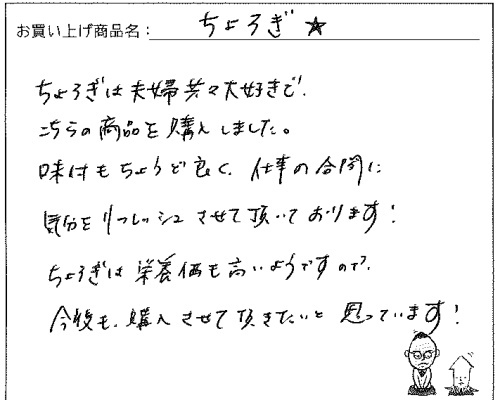 お買い上げ商品名: ちょろぎ ☆
ちょろぎは夫婦共々大好きで、
こちらの商品を購入しました。
味付もちょうど良く、仕事の合間に
気分をリフレッシュさせて頂いております!
ちょろぎは栄養価も高いようですので、
今後も、購入させて頂きたいと思っています!